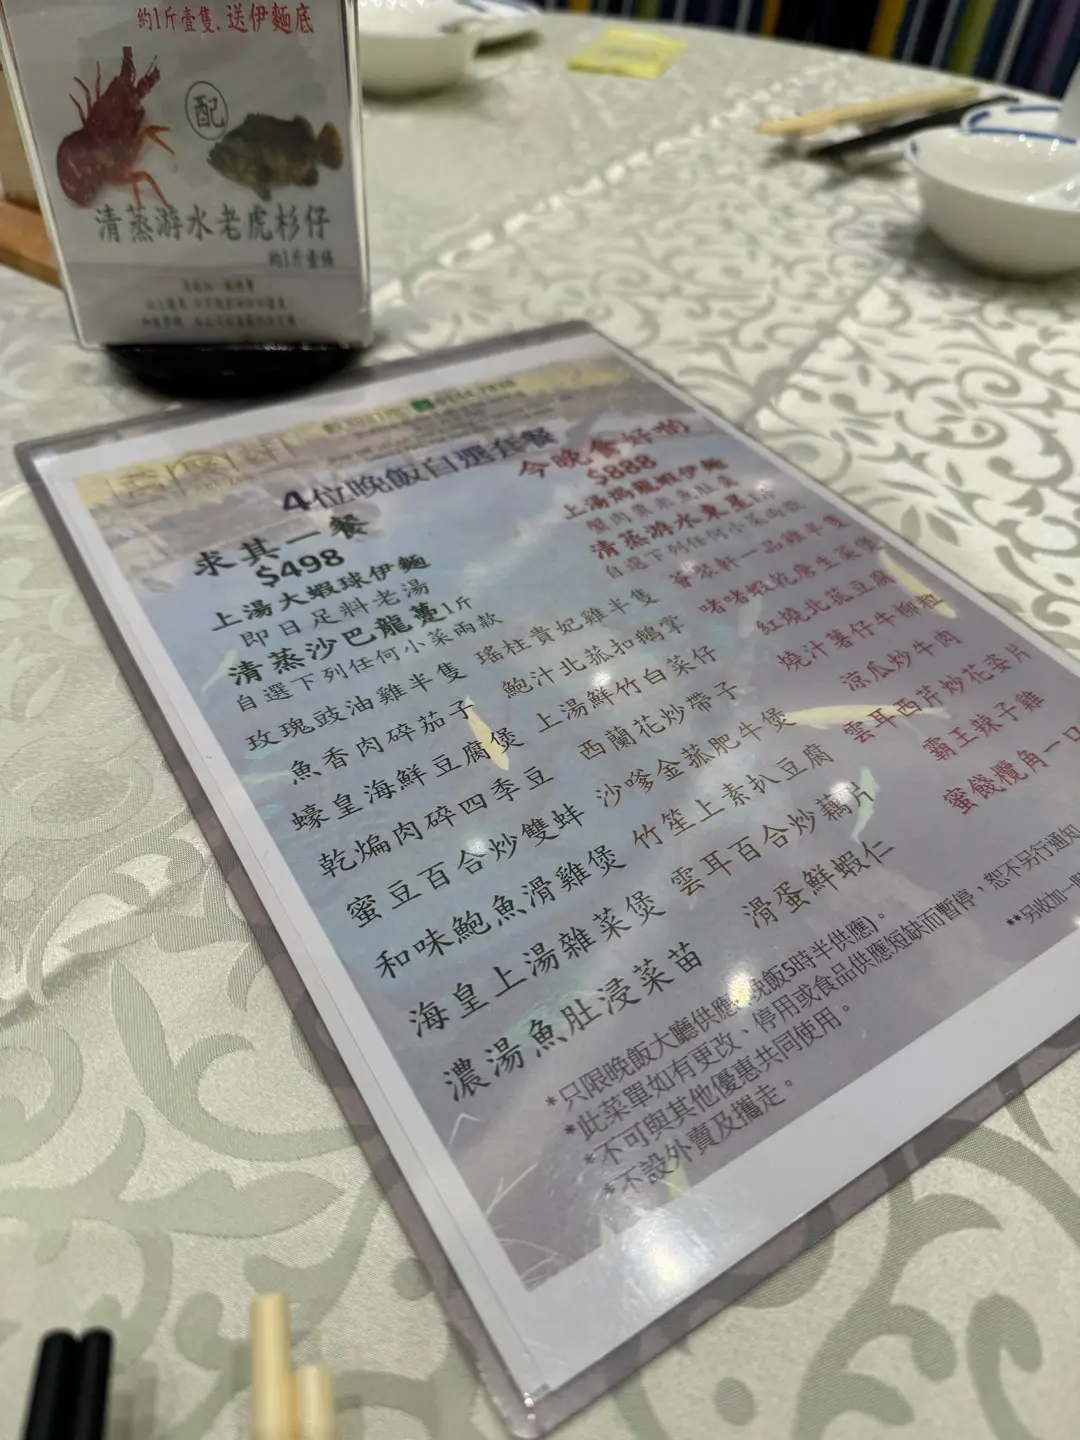 約1斤壹隻,送伊麵底
配
清蒸游水老虎杉仔
約1斤壹條
4位晚飯自選套餐
求其一餐
$498
上湯大蝦球伊麵
即日足料老湯
清蒸沙巴龍躉1斤
自選下列任何小菜兩款
玫瑰豉油雞半隻 瑤柱貴妃雞半隻
魚香肉碎茄子 鮑汁北菰扣鵝掌
蠔皇海鮮豆腐煲 上湯鮮竹白菜仔
乾煸肉碎四季豆 西蘭花炒帶子
蜜豆百合炒雙蚌 沙嗲金菰肥牛煲
和味鮑魚滑雞煲 竹笙上素扒豆腐
海皇上湯雜菜煲 雲耳百合炒藕片
濃湯魚肚浸菜苗 滑蛋鮮蝦仁
今晚食好啲
$888
上湯焗龍蝦伊麵
蟹肉粟米魚肚羹
清蒸游水東星1斤
自選下列任何小菜兩款
薈裝軒一品雞半隻
啫啫蝦乾唐生菜煲
紅燒北菰豆腐
燒汁薯仔牛柳粒
涼瓜炒牛肉
雲耳西芹炒花姿片
霸王辣子雞
蜜餞欖角一口
*只限晚飯大廳供應(晚飯5時半供應)。
*此菜單如有更改、停用或食品供應短缺而暫停，恕不另行通知
*不可與其他優惠共同使用。
*不設外賣及攜走。
**另收加一服